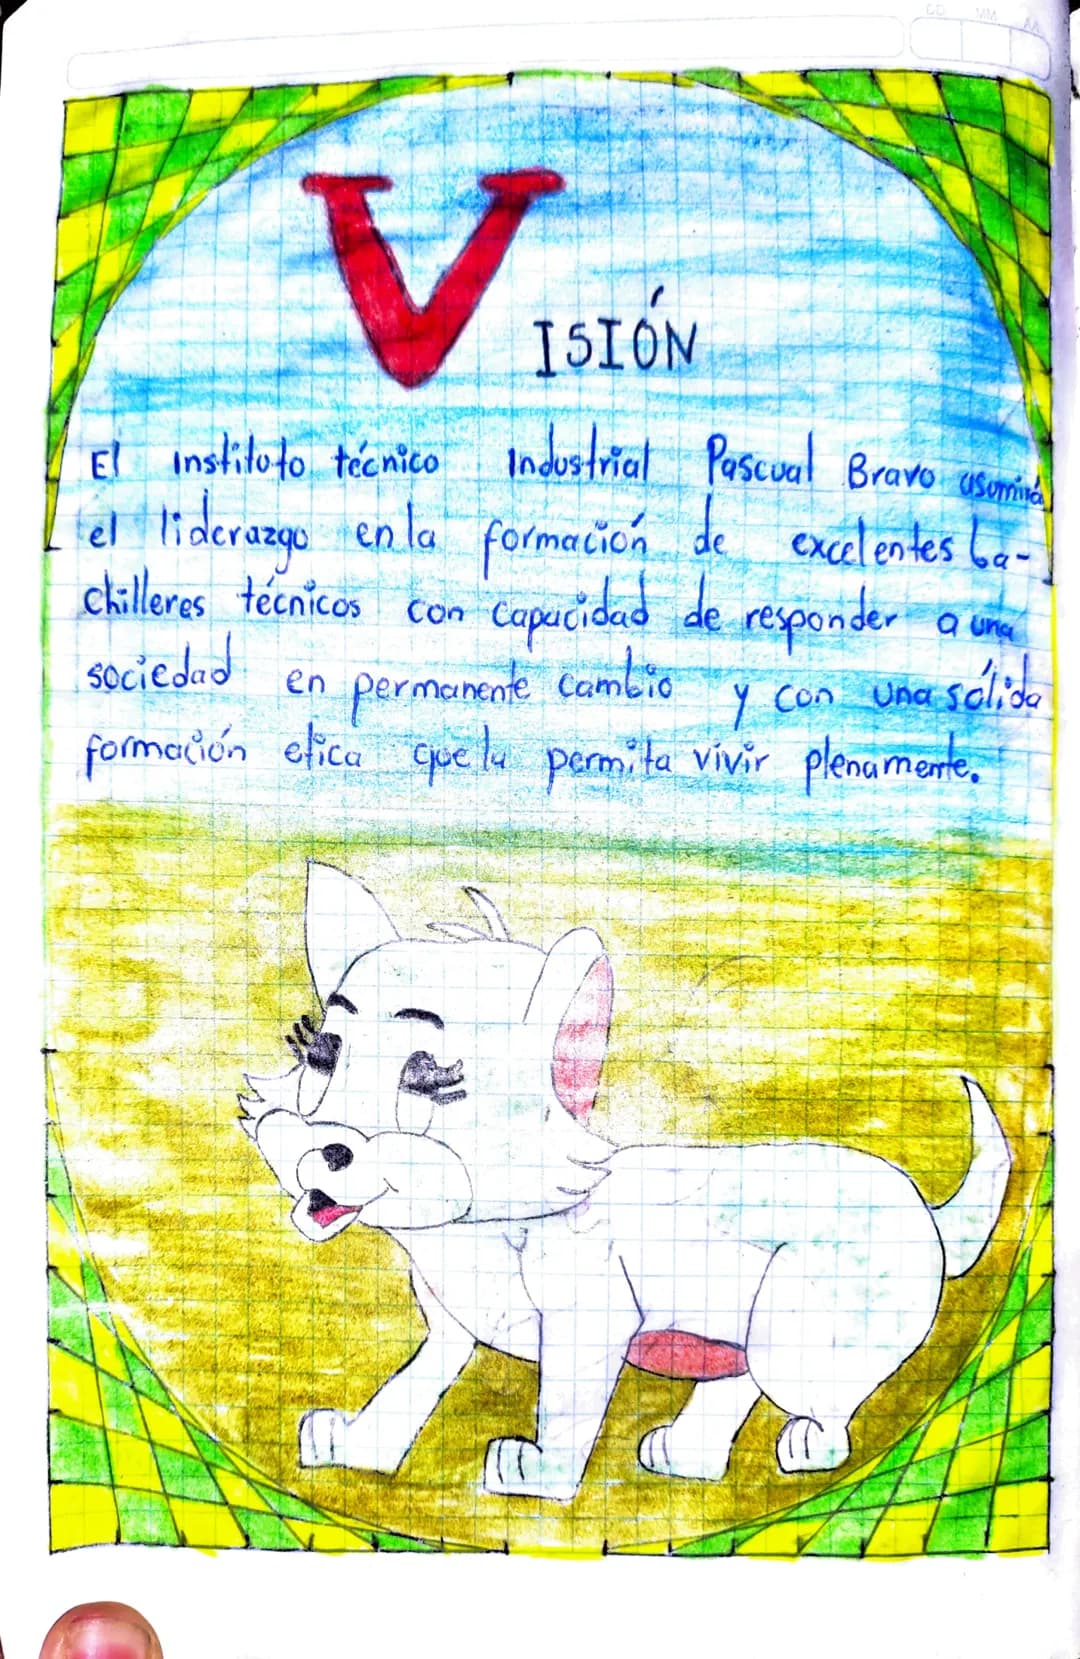 CD MM AA
VISIÓN
El instituto técnico Industrial Pascual Bravo asumirá
el liderazgo en la formación de excelentes ba-
chilleres técnicos con capacidad de responder a una
sociedad en permanente cambio y con una sólida
formación etica que la permita vivir plenamente.